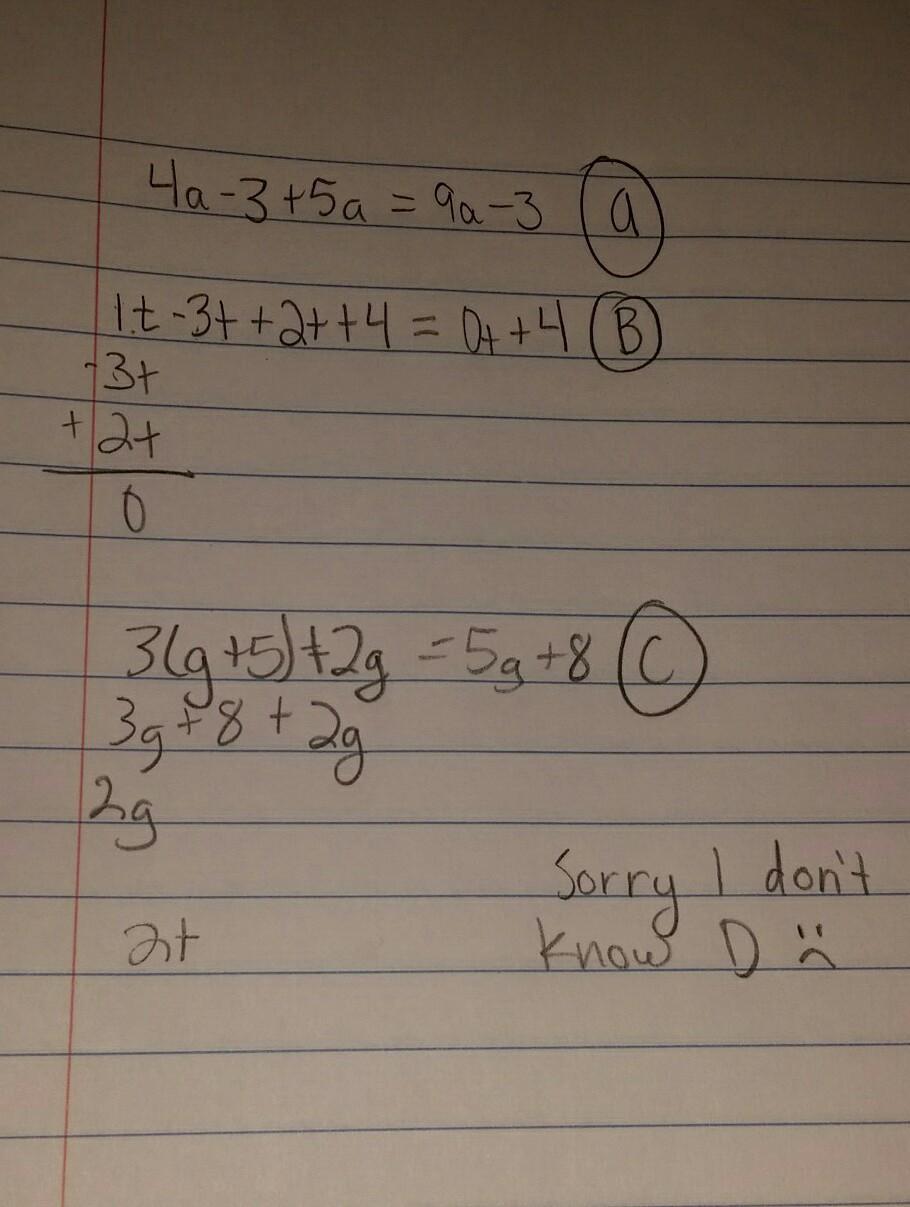 4a-3+5a = 9a-3 a
1t-3t+2t+4 = 0t+4 B
-3t
+2t
0
3(g+5)+2g = 5g+8 C
3g+8+2g
2g
Sorry I don't
2t know D :(